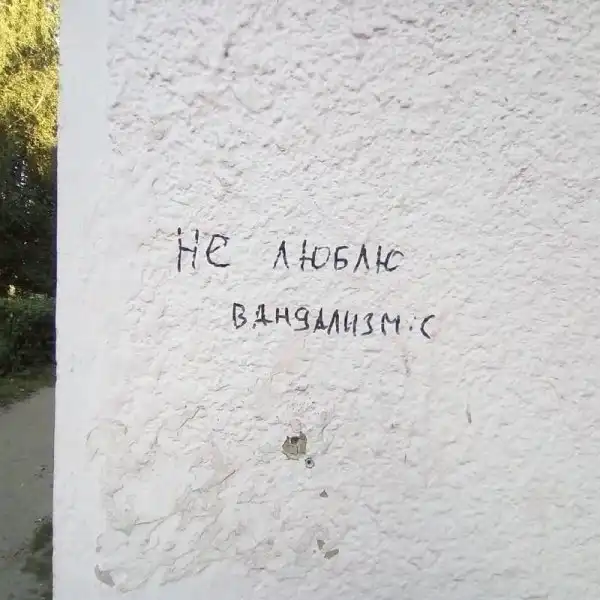 не люблю
вандализм :(